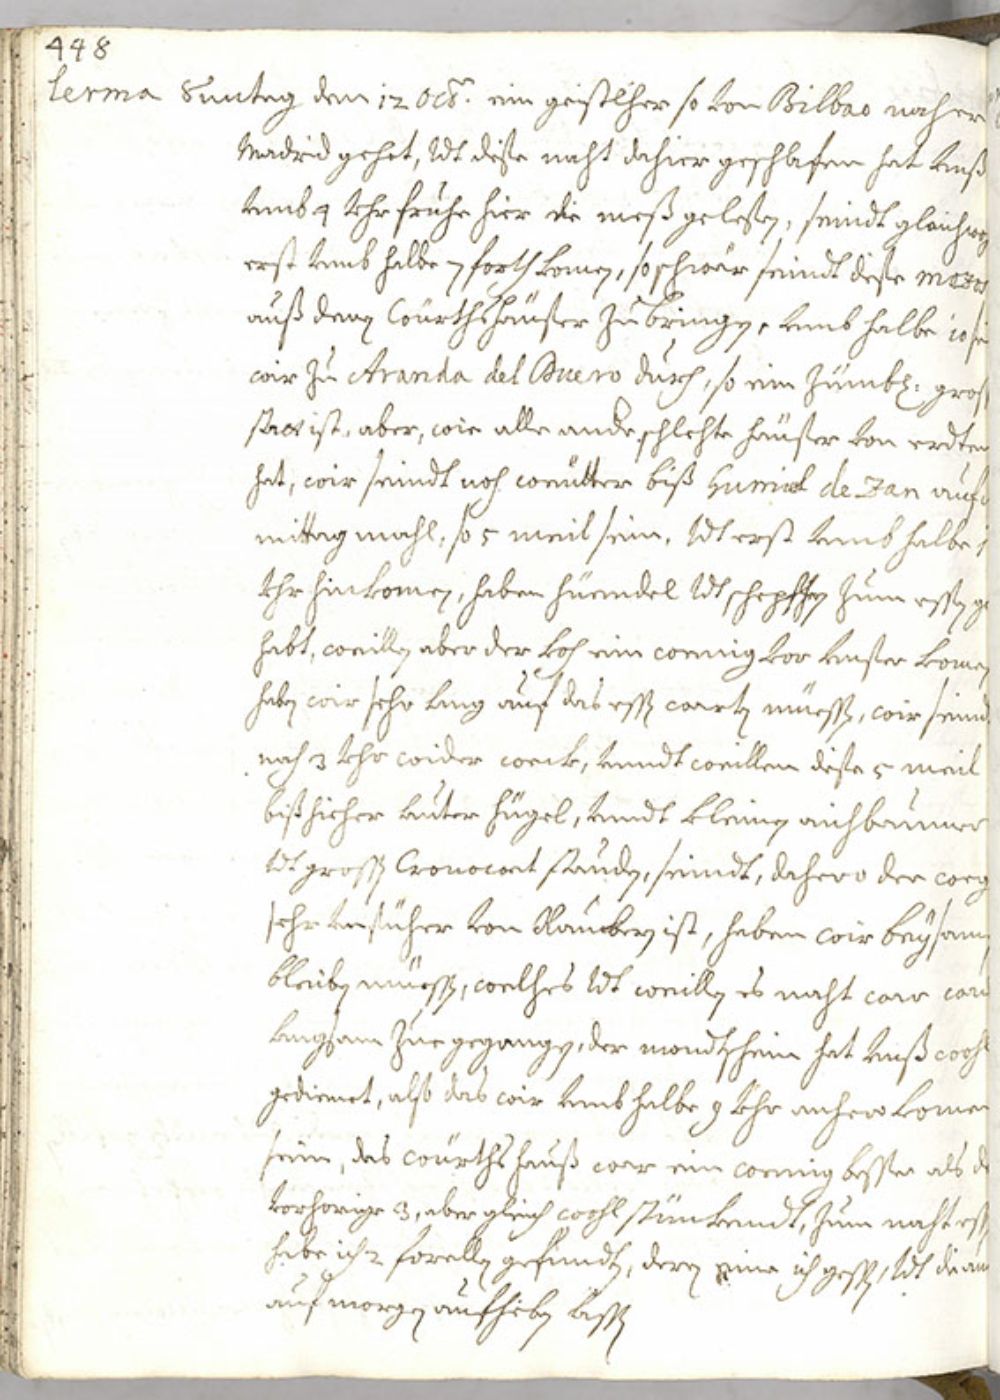 448
Lerma Suntag den 12 Octr. ein geistlher so von Bilbao nacher
Madrid gehet, Vdt diße naht dahier geschlafen hat Vnß
Vmb 4 Vhr fruhe hier die meß geleßen, seindt gleichwo
erst Vmb halbe 7 forth komen, so schwär seindt diße mozos
auß denen Würthshäußer zu bringen, Vmb halbe 10 sei
wir zu Aranda del Duero durch, so ein zümbl: gros
statt ist, aber, wie alle ande schlehte häußer von erdten
hat, wir seindt noh weütter biß Gumiel de Izan auf
mittag mahl, so 5 meil sein, Vdt erst Vmb halbe
Vhr hinkomen, haben hüendel Vdt schepffen zum essen ge
habt, weillen aber der Koh ein wenig vor Vnßer komen
haben wir sehr lang auf das essen warten müessen, wir seind
nach 3 Vhr wider weck, Vnndt weillen diße 5 meil
biß hieher lauter hügel, Vndt kleine aichbaumer
Vdt grosse Cronowet stauden, seindt, dahero der weg
sehr Vnsicher von Rauber ist, haben wir beysamen
bleiben müessen, welhes Vdt weillen es naht war
langsam zue gegangen, der mondtschein hat Vnß wohl
gedienet, also das wir Vmb halbe 9 Vhr anhero komen
sein, das würthshauß war ein wenig besser als d
vorhorige 3, aber gleich wohl stünkendt, zum naht ess
habe ich 2 forellen gefundten, deren eine ich gessen, Vdt die an
auf morgen aufheben lassen